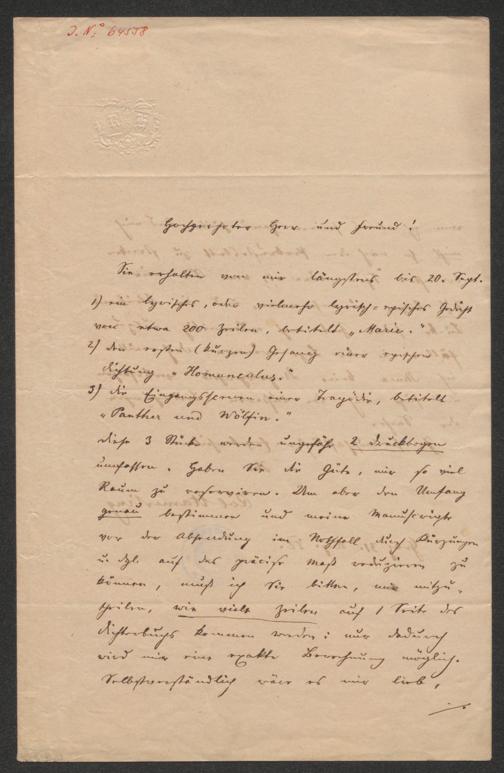 J. N.° 64558
R H
Hochgeehrter Herr und Freund!
Sie erhalten von mir längstens bis 20. Sept.
1) ein lyrisches, oder vielmehr lyrisch-episches Gedicht
von etwa 200 Zeilen, betitelt „Marie."
2) den ersten (kurzen) Gesang einer epischen
Dichtung „Homunculus."
3) die Eingangsscenen einer Tragödie, betitelt
„Panther und Wölfin."
Diese 3 Stücke werden ungefähr 2 Druckbogen
umfassen. Haben Sie die Güte, mir so viel
Raum zu reserviren. Um aber den Umfang
genau bestimmen und meine Manuscripte
vor der Absendung im Nothfall durch Kürzungen
u. dgl. auf das präcise Maß reduziren zu
können, muß ich Sie bitten, mir mitzu-
theilen, wie viele Zeilen auf 1 Seite des
Dichterbuchs kommen werden: nur dadurch
wird mir eine exakte Berechnung möglich.
Selbstverständlich wäre es mir lieb,